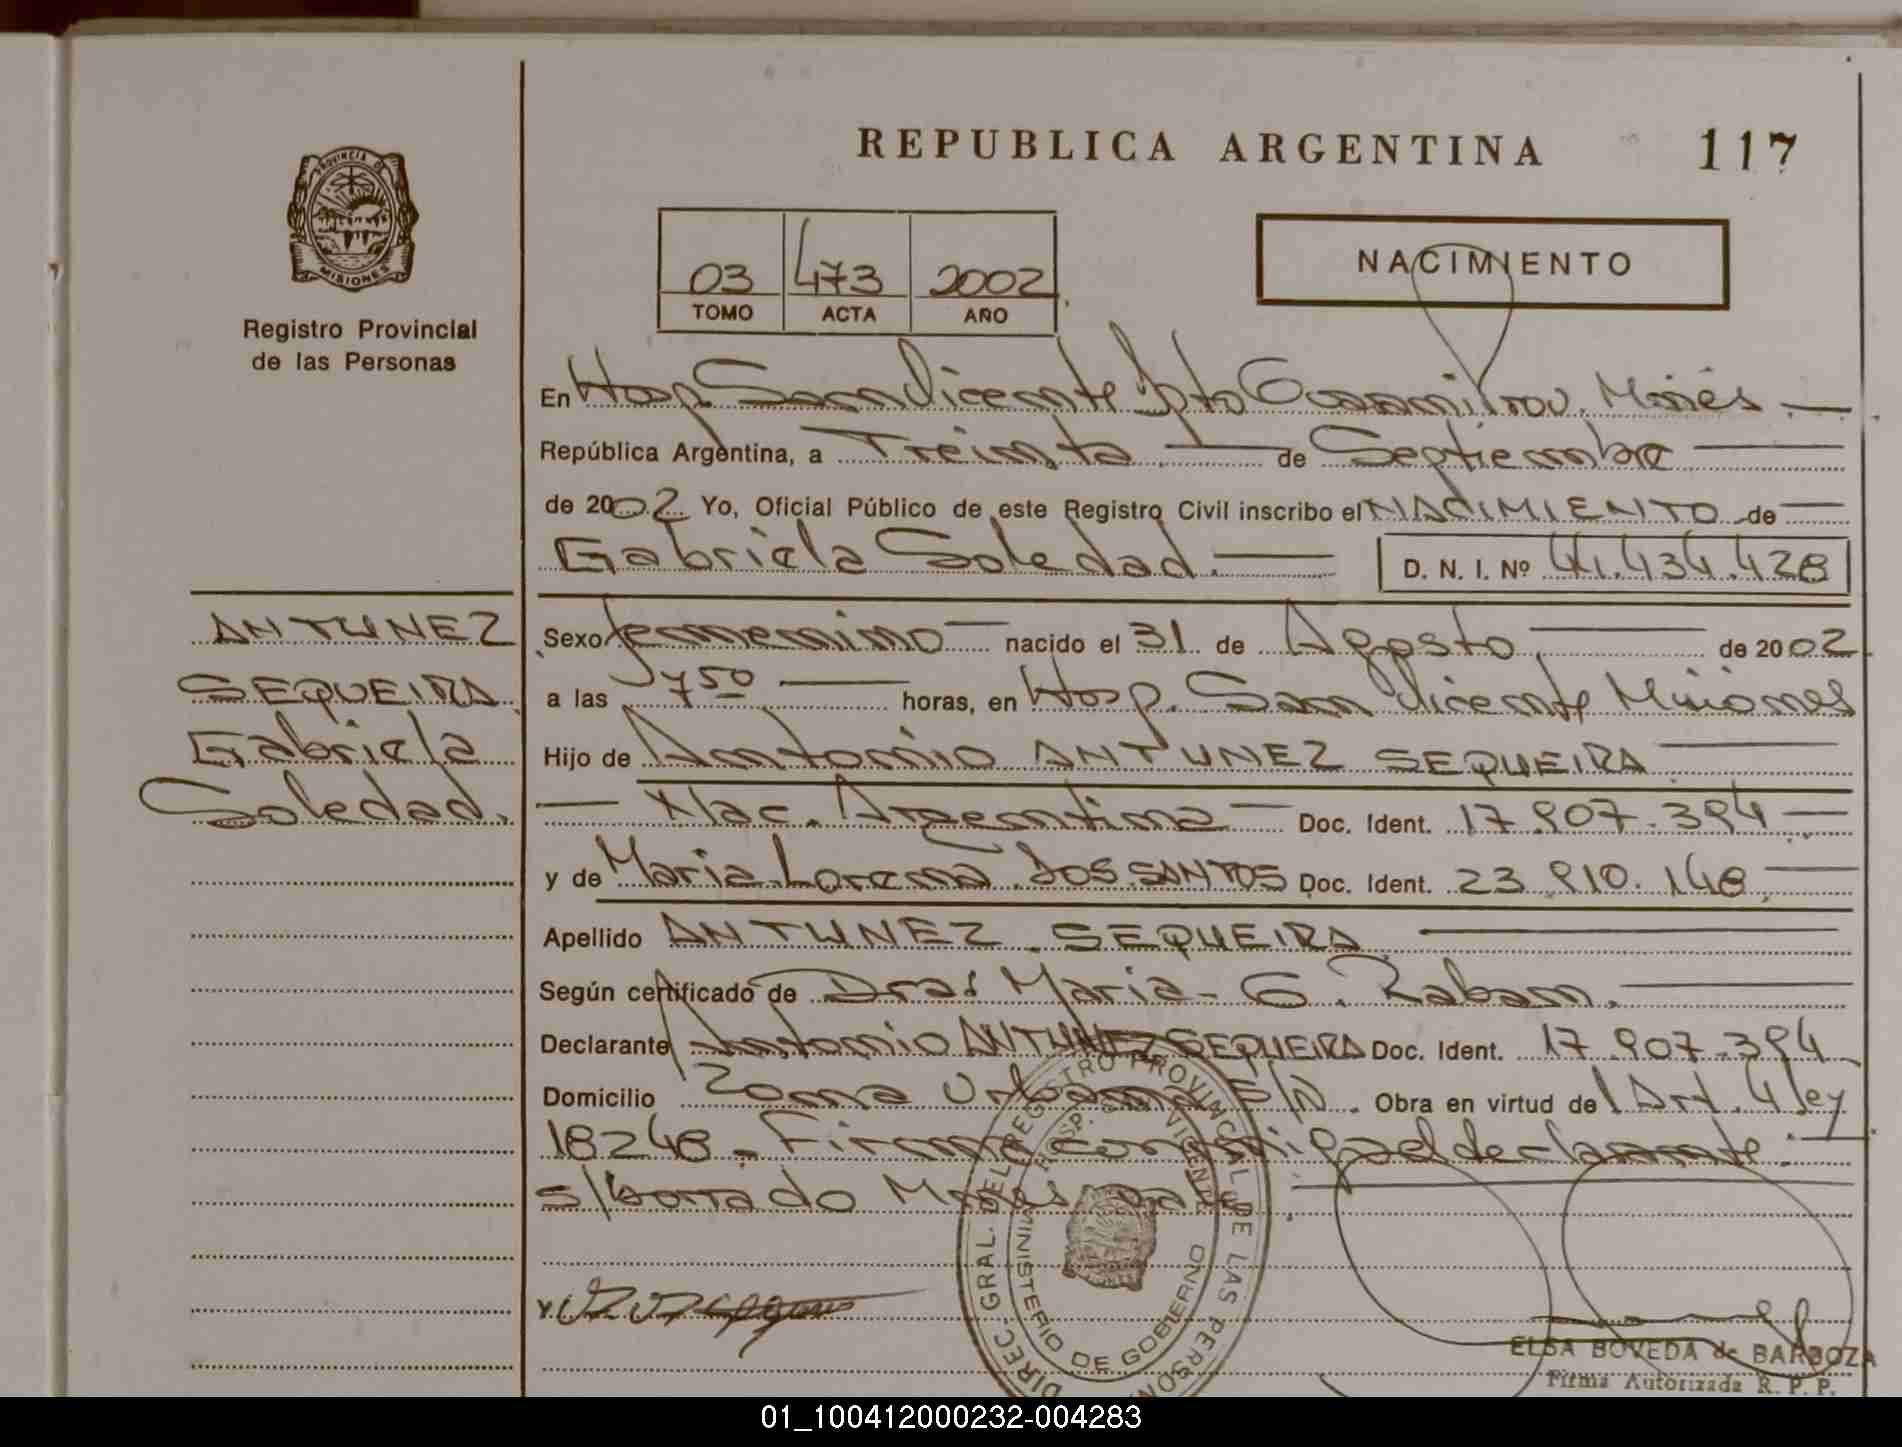 REPUBLICA ARGENTINA 117
PROVINCIA D
MISIONES
Registro Provincial
de las Personas
03 473 2002
TOMO ACTA AÑO
NACIMIENTO
En Hosp. San Vicente Dpto Guarani Prov. Mnes
República Argentina, a Treinta de Septiembre
de 2002 Yo, Oficial Público de este Registro Civil inscribo el NACIMIENTO de
Gabriela Soledad. D. N. I. Nº 44.434.428
ANTUNEZ
SEQUEIRA
Gabriela
Soledad.
Sexo femenino nacido el 31 de Agosto de 2002
a las 7 50 horas, en Hosp. San Vicente Misiones
Hijo de Antonio ANTUNEZ SEQUEIRA
Nac. Argentina Doc. Ident. 17.907.394
y de Maria Lorena DOS SANTOS Doc. Ident. 23.910.148
Apellido ANTUNEZ SEQUEIRA
Según certificado de Dra: Maria G. Raban.
Declarante Antonio ANTUNEZ SEQUEIRA Doc. Ident. 17.907.394
Domicilio Zona Urbana S/N. Obra en virtud de Art. 4 ley
18248. Firma conmigo el declarante.
s/borrado vale.
DIREC. GRAL. DEL REGISTRO PROVINCIAL DE LAS PERSON
HOSP. SAN VICENTE
MINISTERIO DE GOBIERNO
ELSA BOVEDA de BARBOZA
Firma Autorizada R. P. P.
01_100412000232-004283